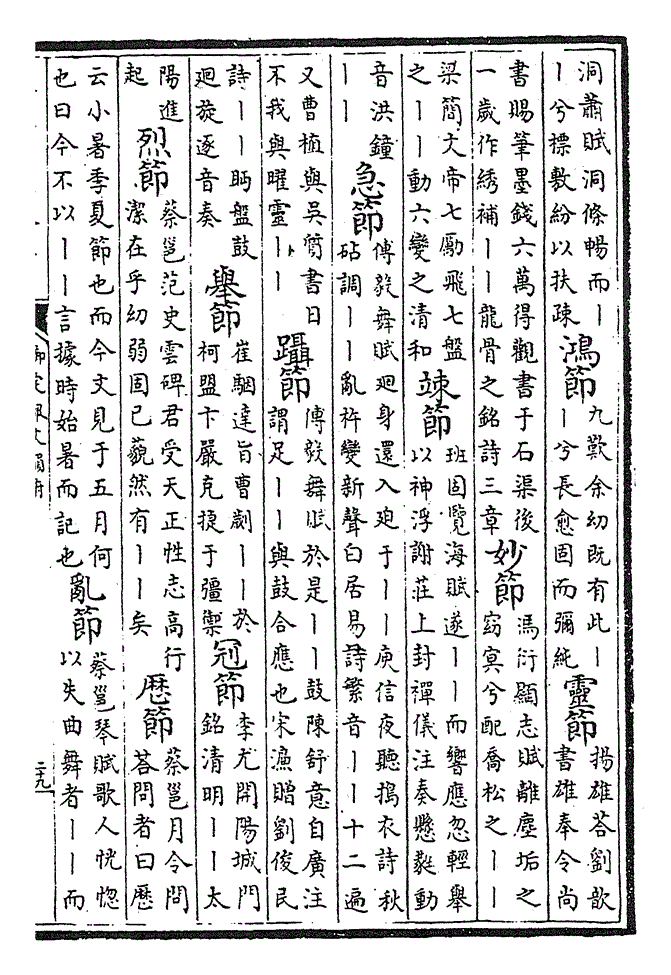 洞蕭賦洞條暢而丨
丨兮標敷紛以扶疎
鴻節
九歎余幼既有此丨
丨兮長愈固而彌純
靈節
揚雄荅劉歆
書雄奉令尚
書賜筆墨錢六萬得觀書于石渠後
一歲作綉補丨丨龍骨之銘詩三章
妙節
馮衍顯志賦離塵垢之
窈冥兮配喬松之丨丨
梁簡文帝七勵飛七盤
之丨丨動六變之清和
竦節
班固覽海賦遂丨丨而響應忽輕舉
以神浮謝莊上封禪儀注奏懸毿動
音洪鐘
丨丨
急節
傅毅舞賦廻身還入廹于丨丨庾信夜聽搗衣詩秋
砧調丨丨亂杵變新聲白居易詩繁音丨丨十二遍
又曹植與吳質書日
不我與曜靈丨丨
躡節
傅毅舞賦於是丨丨鼓陳舒意自廣注
謂足丨丨與鼓合應也宋濂贈劉俊民
詩丨丨眄盤鼓
廻旋逐音奏
舉節
崔駰達旨曹劌丨丨於
柯盟卞嚴克捷于彊禦
冠節
李尤開陽城門
銘清明丨丨太
陽進
起
烈節
蔡邕范史雲碑君受天正性志高行
潔在乎幼弱固已藐然有丨丨矣
歷節
蔡邕月令問
荅問者曰歷
云小暑季夏節也而今文見于五月何
也曰今不以丨丨言據時始暑而記也
亂節
蔡邕琴賦歌人恍惚
以失曲舞者丨丨而
御定佩文韻府